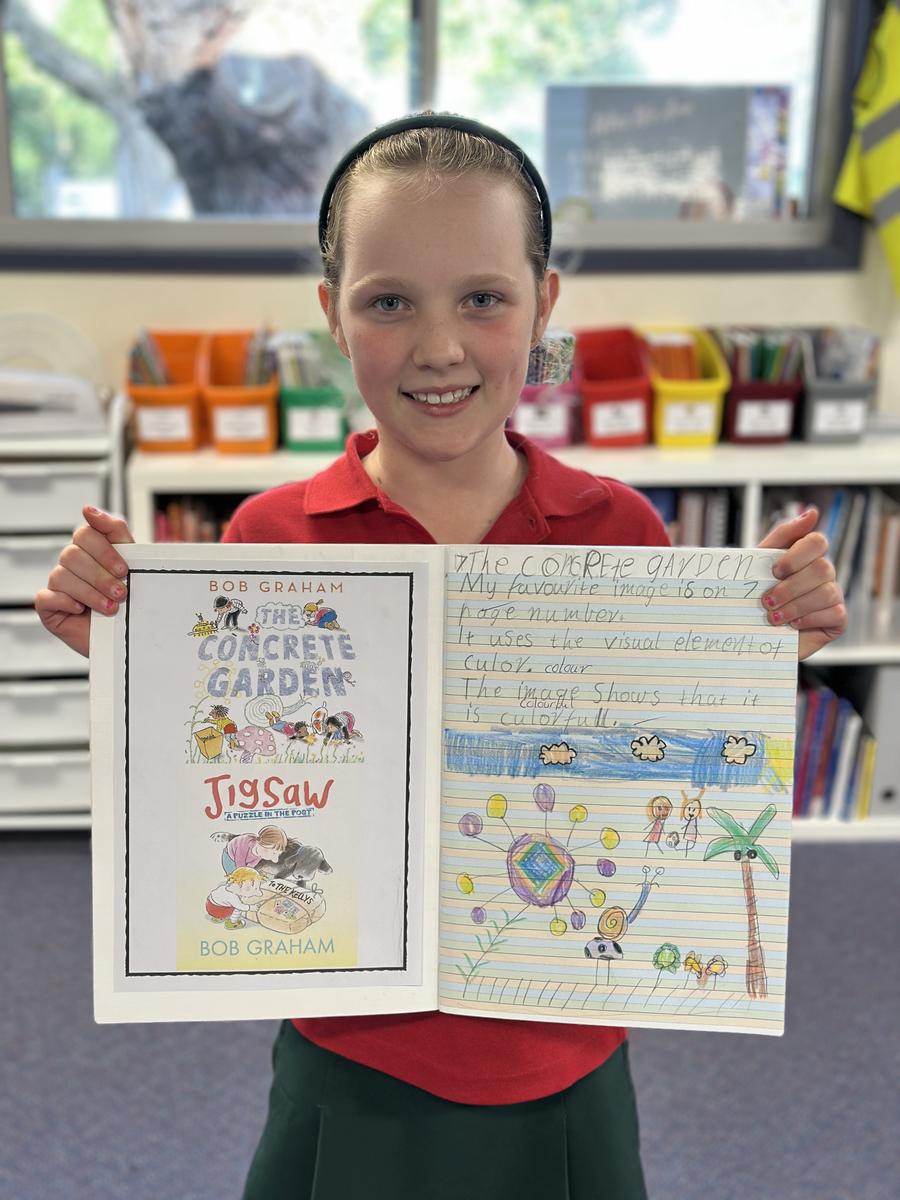 BOB GRAHAM
THE
CONCRETE
GARDEN
JIGSAW
A PUZZLE IN THE POST
TO THE KELLYS
BOB GRAHAM
The CONCRETE gARDEN
My favourite image is on 7
page number.
It uses the visual element of
culor. colour
The image Shows that it
colourful
is culorfull.